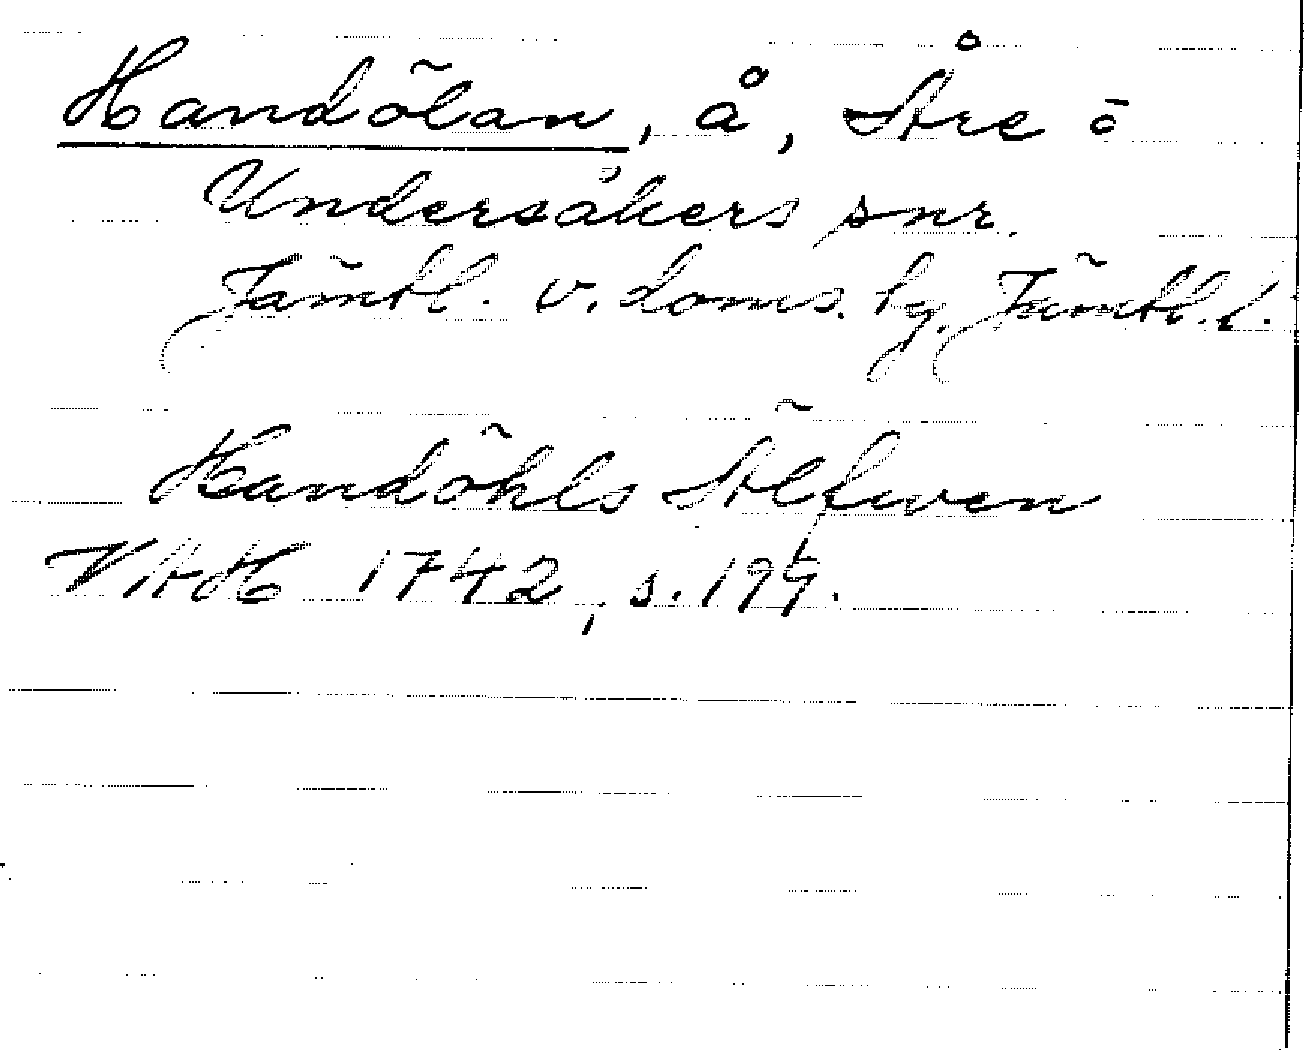 Handölan, å, Åre o
Undersåkers snr.
Jämtl. v. doms. tg. Jämtl. l.
Handöhls Älfwen
VAH 1742, s. 199.